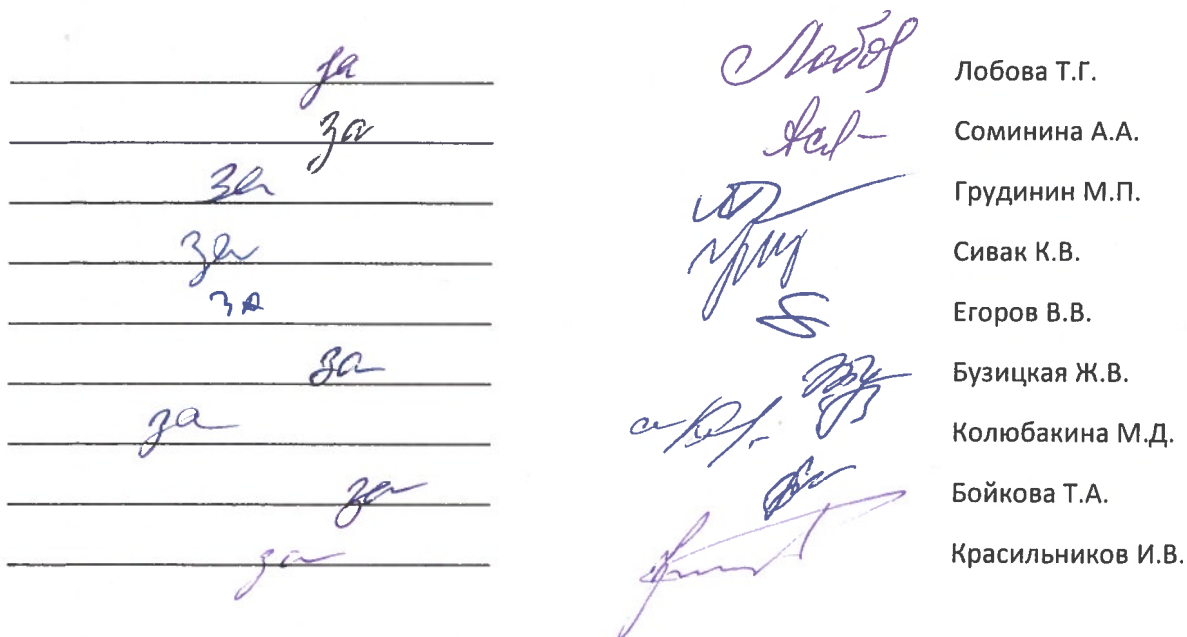 за Лобова Т.Г.
за Соминина А.А.
за Грудинин М.П.
за Сивак К.В.
за Егоров В.В.
за Бузицкая Ж.В.
за Колюбакина М.Д.
за Бойкова Т.А.
за Красильников И.В.